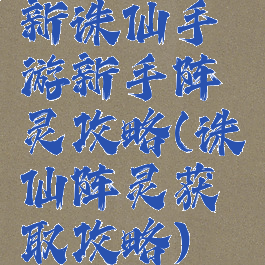 新诛仙手
游新手阵
灵攻略(诛
仙阵灵获
取攻略)